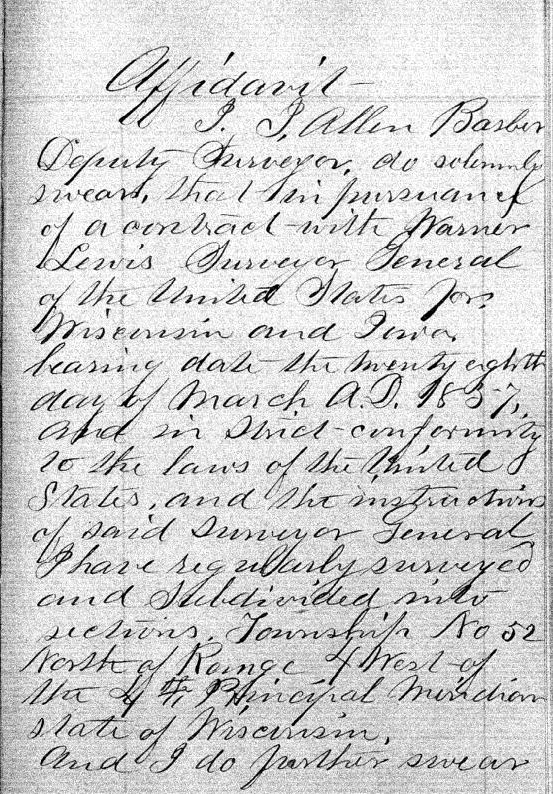 Affidavit-
I. J. Allen Barber
Deputy Surveyor, do solemnly
swear, that in pursuance
of a contract with Warner
Lewis Surveyor General
of the United States for
Wisconsin and Iowa,
bearing date the twenty eighth
day of March A.D. 1857,
and in strict conformity
to the laws of the United
States, and the instructions
of said Surveyor General,
I have regularly surveyed
and Subdivided into
sections, Township No 52
North of Range 4 West of
the 4th Principal Meridian
state of Wisconsin,
And I do further swear